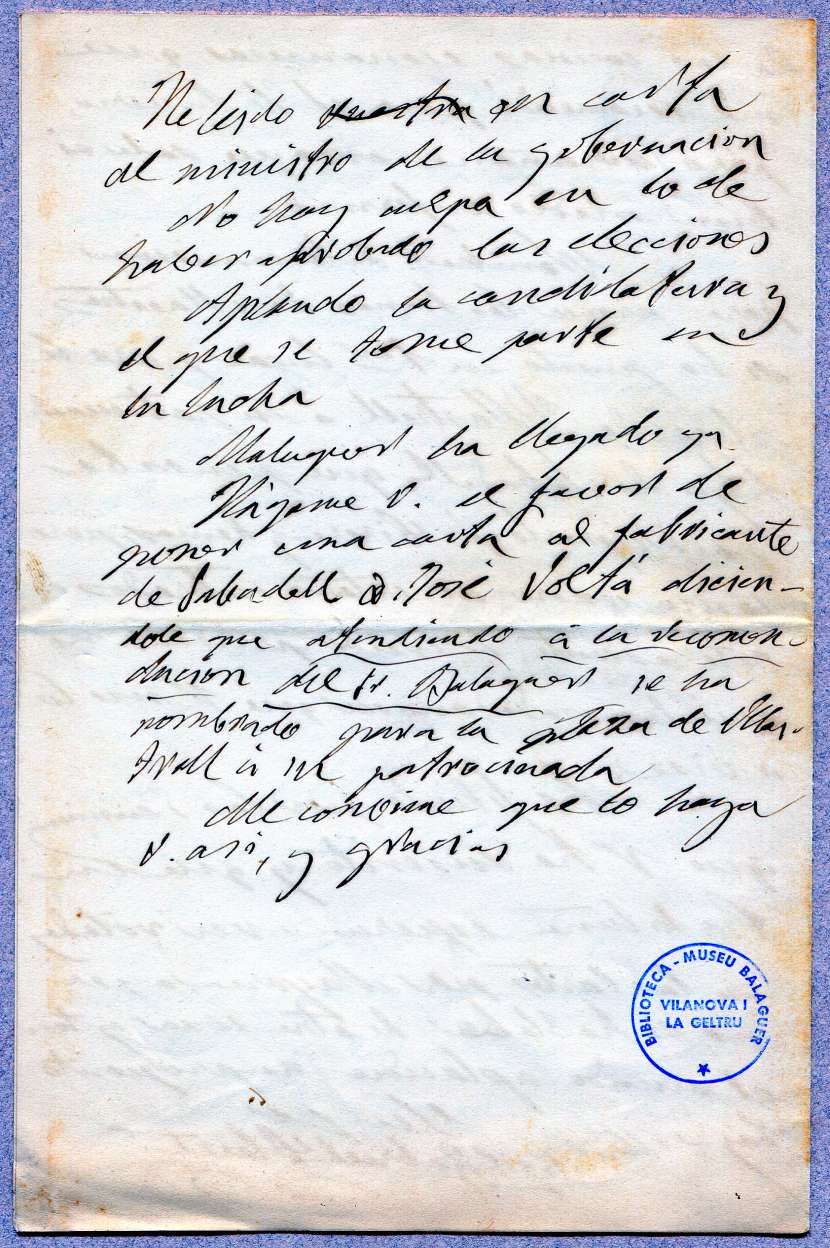 He leido ~~vuestra~~ su carta
al ministro de la gobernacion
No hay culpa en lo de
haber aprobado las elecciones
Aplaudo la candidatura y
el que se tome parte en
la lucha
Maluquer ha llegado ya
Hágame V. el favor de
poner una carta al fabricante
de Sabadell D. José Voltá dicien-
dole que atendiendo á la recomen-
dacion del Sr. Balaguer se ha
nombrado para la plaza de Ullas-
trell á su patrocinada
Me conviene que lo haga
V. asi, y gracias
BIBLIOTECA - MUSEU BALAGUER
VILANOVA I
LA GELTRU